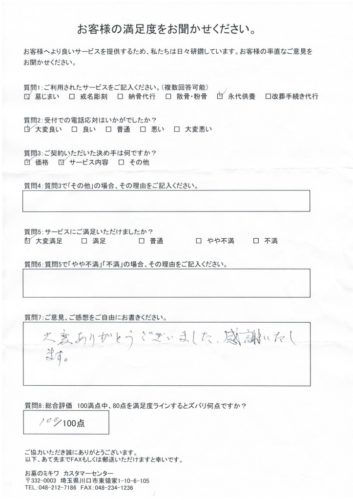 お客様の満足度をお聞かせください。
お客様へより良いサービスを提供するため、私たちは日々研鑽しています。お客様の率直なご意見を
お聞かせください。
質問1:ご利用されたサービスをご記入ください。（複数回答可能）
☑ 墓じまい □ 戒名彫刻 □ 納骨代行 □ 散骨・粉骨 ☑ 永代供養 □改葬手続き代行
質問2:受付での電話応対はいかがでしたか？
☑ 大変良い □ 良い □ 普通 □ 悪い □ 大変悪い
質問3:ご契約いただいた決め手は何ですか？
☑ 価格 ☑ サービス内容 □ その他
質問4:質問3で「その他」の場合、その理由をご記入ください。
質問5:サービスにご満足いただけましたか？
☑ 大変満足 □ 満足 □ 普通 □ やや不満 □ 不満
質問6:質問5で「やや不満」「不満」の場合、その理由をご記入ください。
質問7:ご意見、ご感想をご自由にお書きください。
大変ありがとうございました、感謝いたし
ます。
質問8:総合評価 100満点中、80点を満足度ラインするとズバリ何点ですか？
100/100点
ご協力いただき誠にありがとうございます。
以下、あて先までFAXもしくは郵送いただけますと幸いです。
お墓のミキワ カスタマーセンター
〒332-0003 埼玉県川口市東領家1-10-6-105
TEL:048-212-7186 FAX:048-234-1236